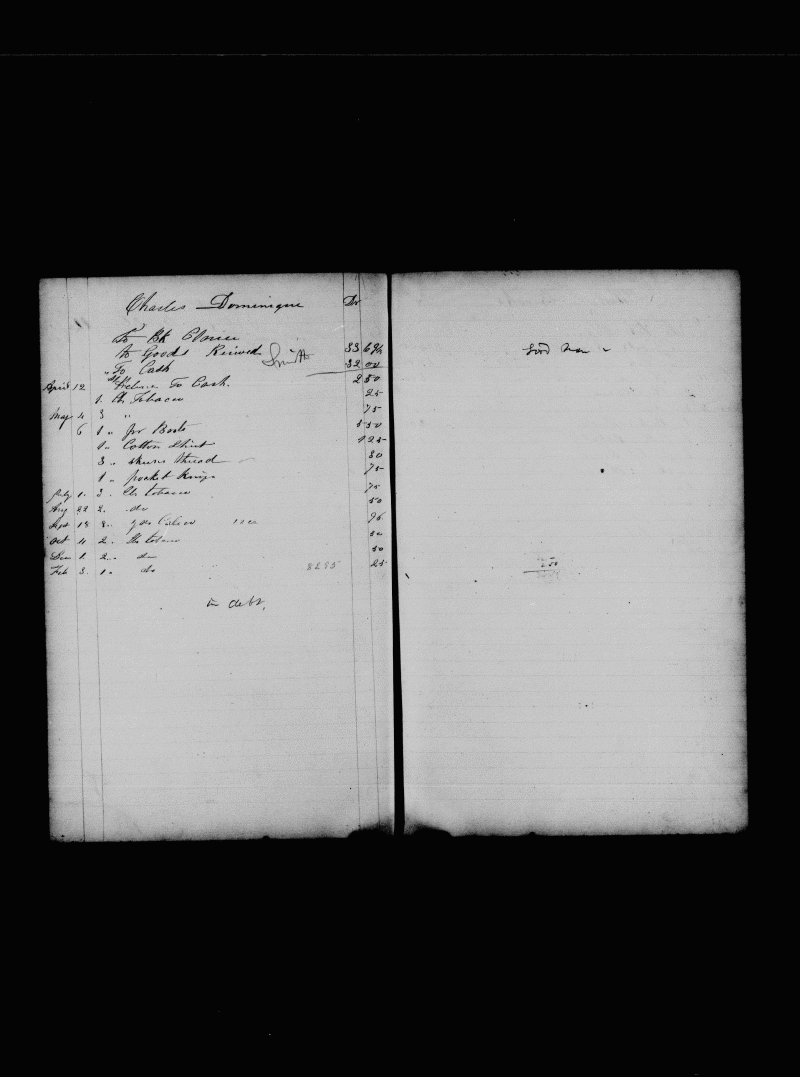 Charles Dominique Dr
To Bk
to Goods Smith 33 69½
" To Cash 32 00
April 12 To Cash. 2 50
1. lb. Tobacco 25
May 4 3 " 75
6 1 " pr Boots 5 50
1 " Cotton Shirt 1 25
3 " skeins thread 30
1 " pocket Knife 75
July 1. 3. lbs tobacco 75
Aug 22 2. do 50
Sept 13 yds Calico 96
Oct 4 2. lbs tobacco 50
Dec 1 2.. do 50
Feb 3. 1.. do 25
in debt,
Good Man